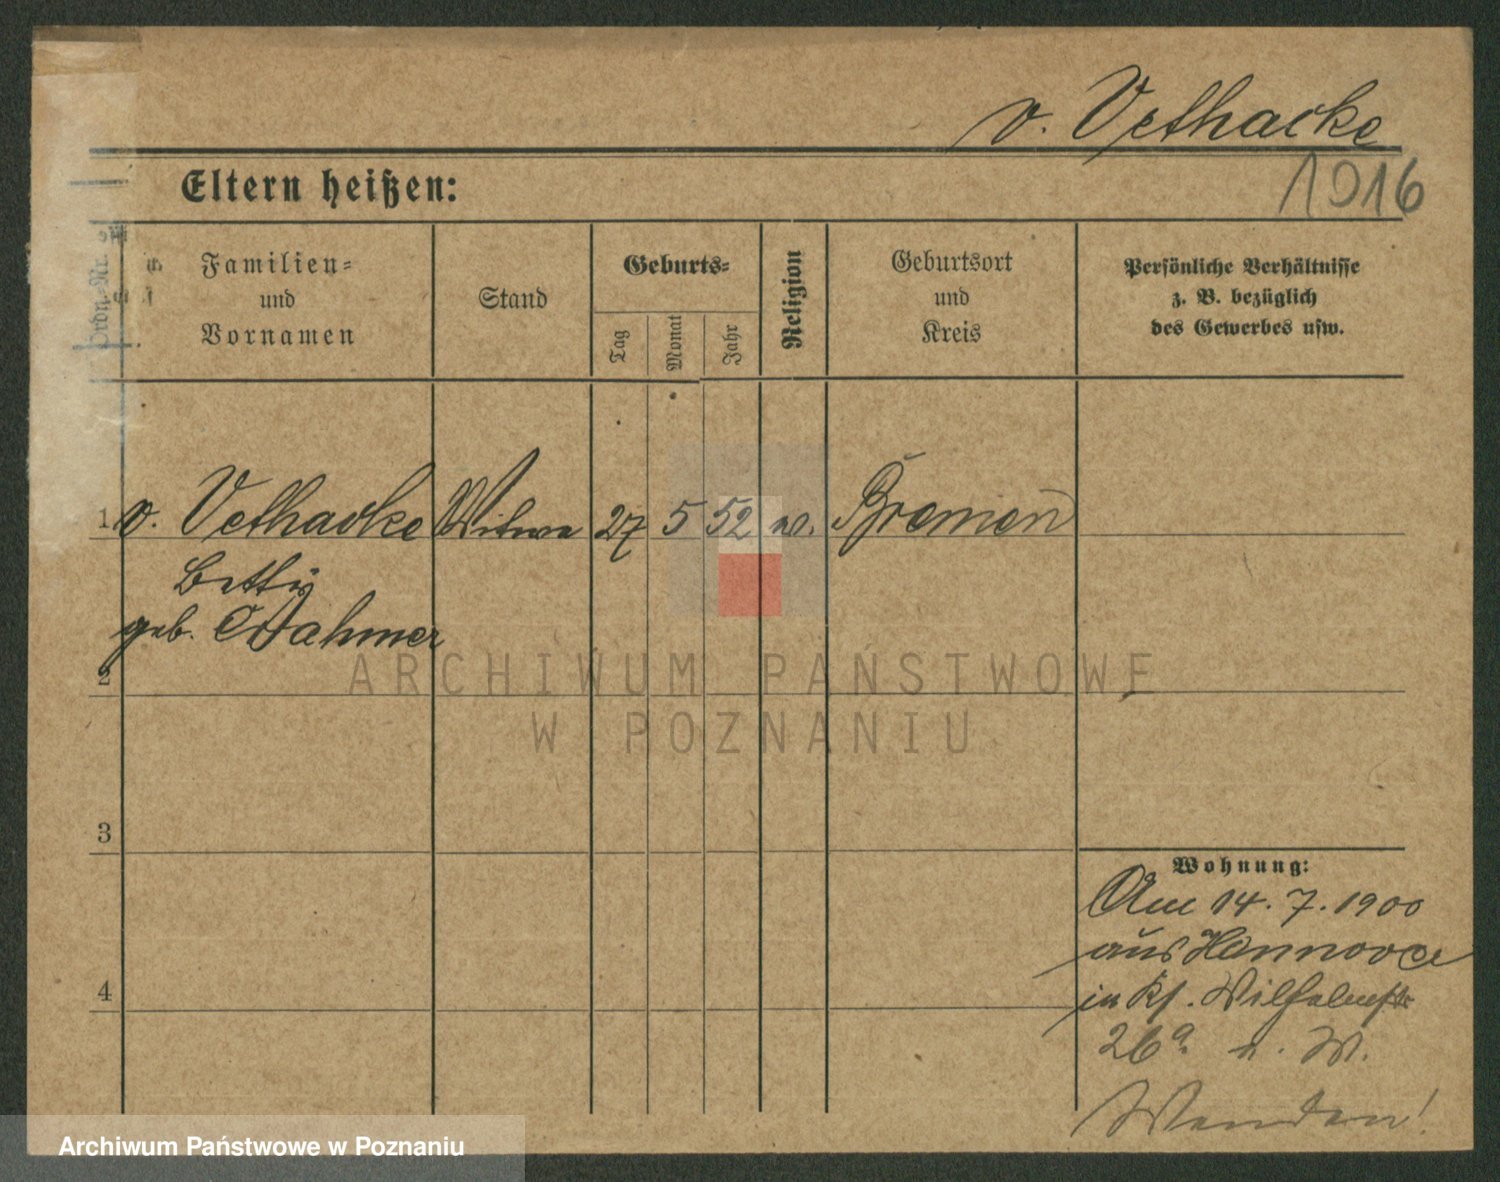 v. Vethacke
1916
Eltern heißen:
Ordn.-Nr.
Familien-
und
Vornamen
Stand
Geburts-
Tag
Monat
Jahr
Religion
Geburtsort
und
Kreis
Persönliche Verhältnisse
z. B. bezüglich
des Gewerbes usw.
1 v. Vethacke Witwe 27 5 52 Bremen
Betti
geb. Dahmer
2
ARCHIWUM PAŃSTWOWE
W POZNANIU
3
Wohnung:
Am 14. 7. 1900
aus Hannover
4
in Wilhelmstr
26a W.
Wenden!
Archiwum Państwowe w Poznaniu